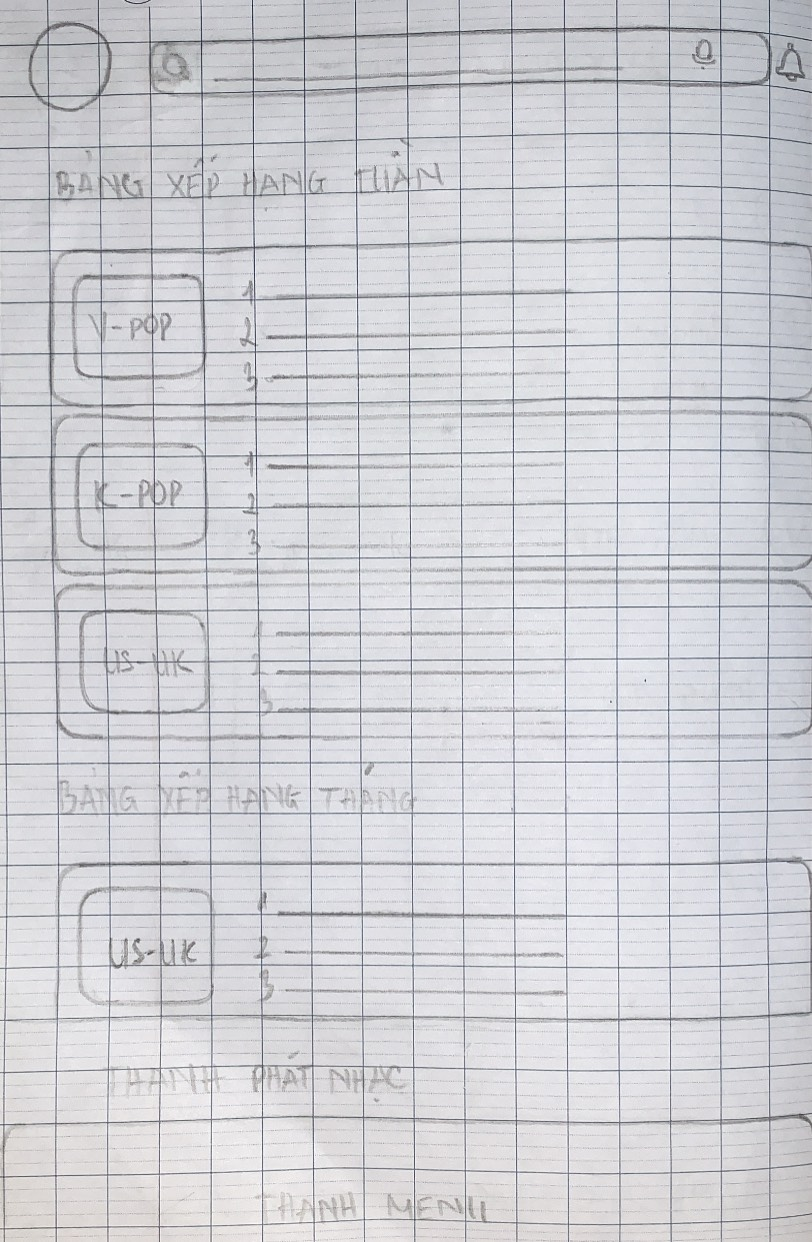 BẢNG XẾP HẠNG TUẦN
V-POP
1
2
3
K-POP
1
2
3
US-UK
1
2
3
BẢNG XẾP HẠNG THÁNG
US-UK
1
2
3
THANH PHÁT NHẠC
THANH MENU